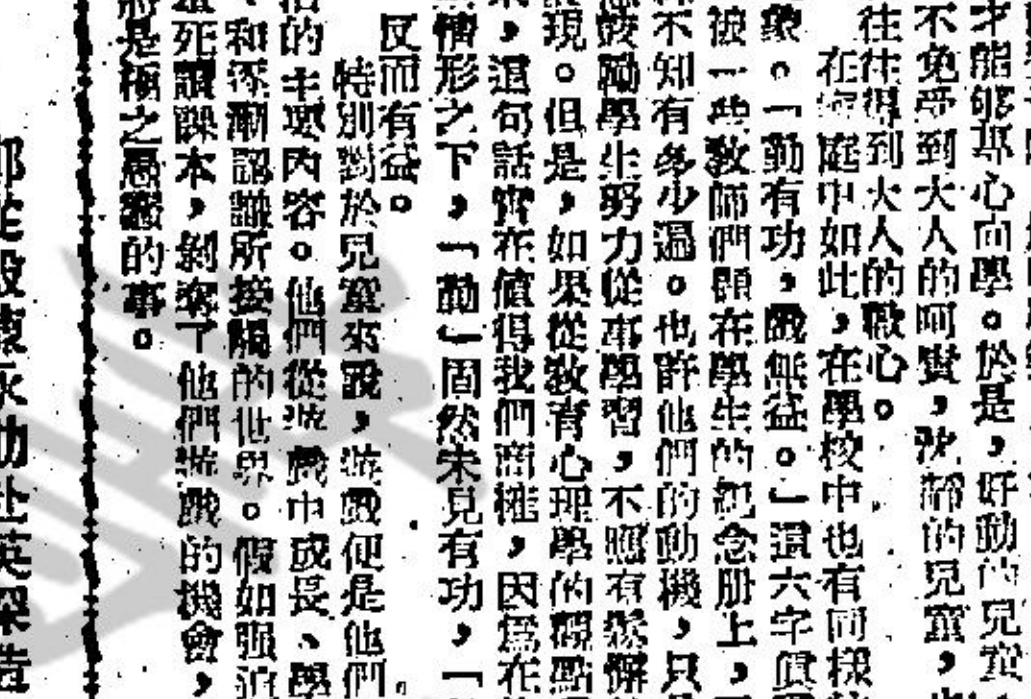 才能够專心向學。於是,好動的兒童
不免受到大人的呵責,沈靜的兒童,
往往得到大人的歡心。
在家庭中如此,在學校中也有同樣
象。「勤有功,戲無益。」這六字真
被一些教師們題在學生的紀念册上,
不知有多少遍。也許他們的動機,只
鼓勵學生努力從事學習,不應有鬆懈
現。但是,如果從教育心理學的觀點
,這句話實在值得我們商榷,因爲在
情形之下,「勤」固然未見有功,「
反而有益。
特別對於兒童來說,遊戲便是他們
的主要內容。他們從遊戲中成長、學
和逐漸認識所接觸的世界。假如强迫
死讀課本,剝奪了他們遊戲的機會,
將是極之愚蠢的事。
永勋赴英深造